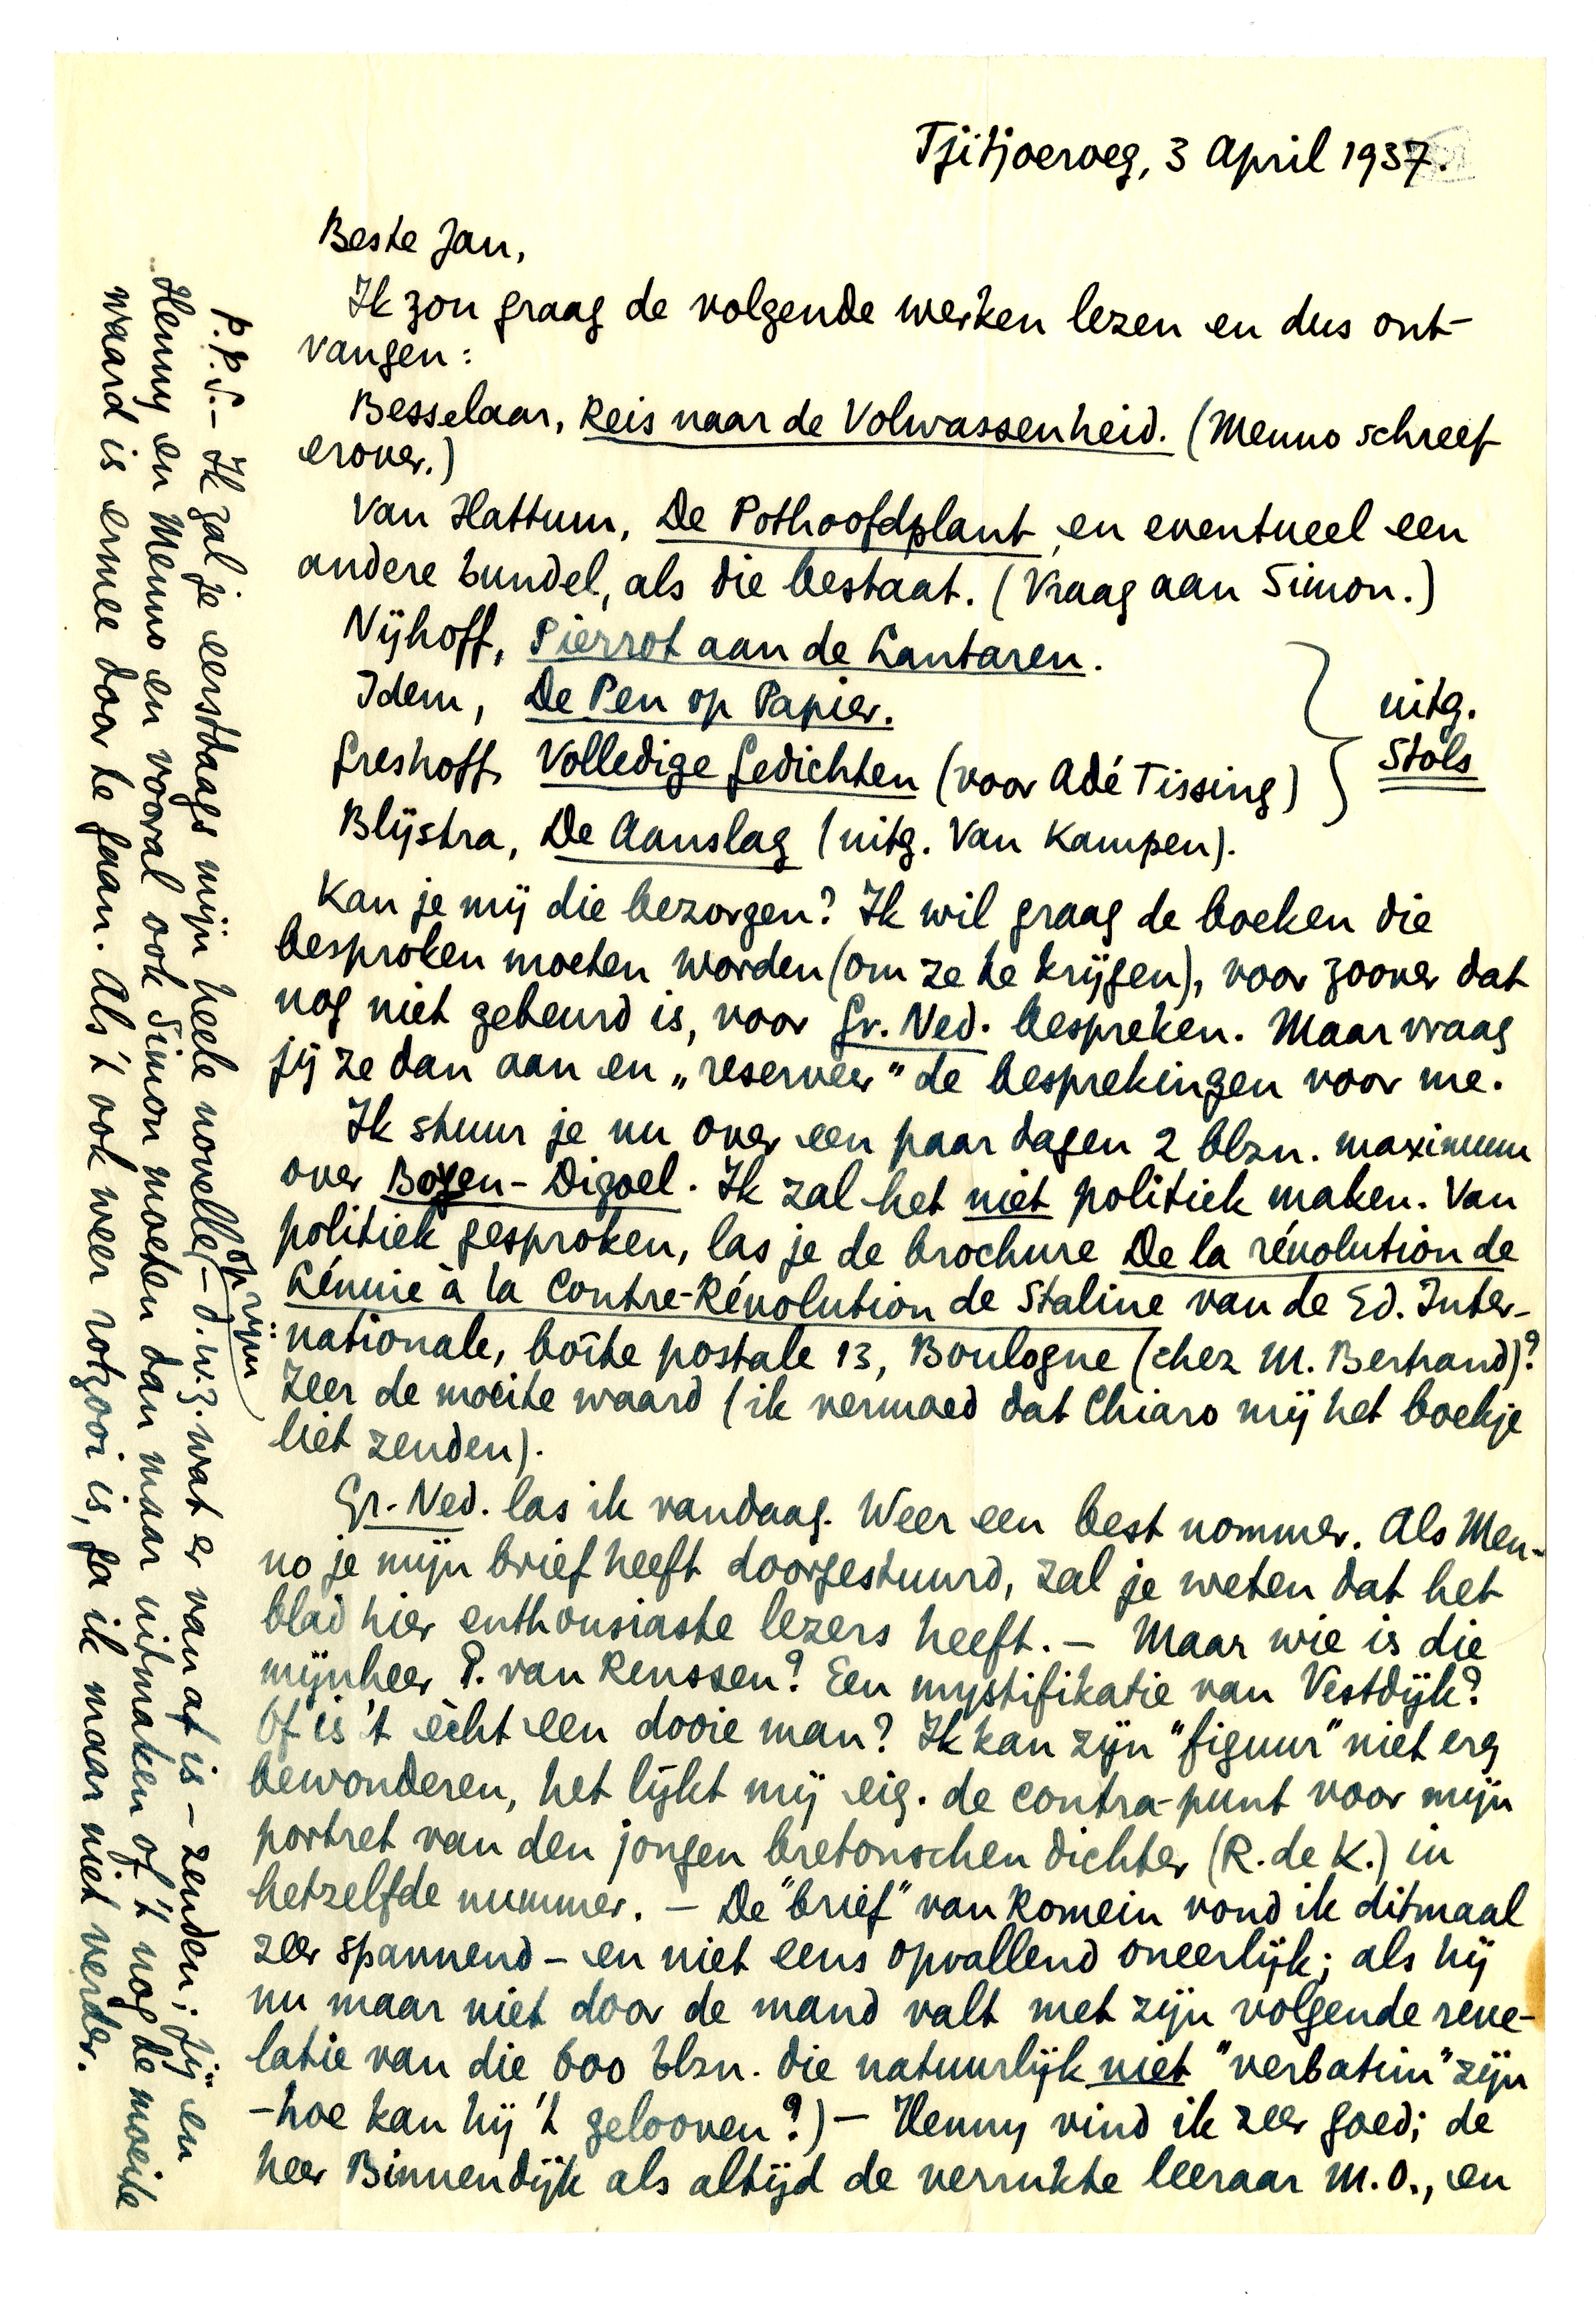 Tjitjoeroeg, 3 April 1937.
Beste Jan,
Ik zou graag de volgende werken lezen en dus ont-
vangen:
Besselaar, Reis naar de Volwassenheid. (Menno schreef
erover.)
Van Hattum, De Pothoofdplant, en eventueel een
andere bundel, als die bestaat. (Vraag aan Simon.)
Nijhoff, Pierrot aan de Lantaren.
Idem, De Pen op Papier.
Greshoff, Volledige Gedichten (voor Adé Tissing)
uitg.
Stols
Blijstra, De Aanslag (uitg. Van Kampen).
Kan je mij die bezorgen? Ik wil graag de boeken die
besproken moeten worden (om ze te krijgen), voor zoover dat
nog niet gebeurd is, voor Gr. Ned. bespreken. Maar vraag
jij ze dan aan en „reserveer" de besprekingen voor me.
Ik stuur je nu over een paar dagen 2 blzn. maximum
over Boven-Digoel. Ik zal het niet politiek maken. Van
politiek gesproken, las je de brochure De la révolution de
Lénine à la Contre-Révolution de Staline van de Ed. Inter-
nationale, boîte postale 13, Boulogne (chez M. Bertrand)?
Zeer de moeite waard (ik vermoed dat Chiaro mij het boekje
liet zenden).
Gr. Ned. las ik vandaag. Weer een best nommer. Als Men-
no je mijn brief heeft doorgestuurd, zal je weten dat het
blad hier enthousiaste lezers heeft. — Maar wie is die
mijnheer P. van Renssen? Een mystifikatie van Vestdijk?
Of is 't ècht een dooie man? Ik kan zijn "figuur" niet erg
bewonderen, het lijkt mij eig. de contra-punt voor mijn
portret van den jongen bretonschen dichter (R. de K.) in
hetzelfde nummer. — De "brief" van Romein vond ik ditmaal
zeer spannend – en niet eens opvallend oneerlijk; als hij
nu maar niet door de mand valt met zijn volgende reve-
latie van die 600 blzn. die natuurlijk niet "verbatim" zijn
– hoe kan hij 't gelooven?) — Henny vind ik zeer goed; de
heer Binnendijk als altijd de verrukte leeraar M.O., en
P.P.S. – Ik zal je eerstdaags mijn heele novelle, – d.w.z. wat er van af is – zenden; jij en
op rijm
Henny en Menno en vooral ook Simon moeten dan maar uitmaken of 't nog de moeite
waard is ermee door te gaan. Als 't ook weer rotzooi is, ga ik maar niet verder.